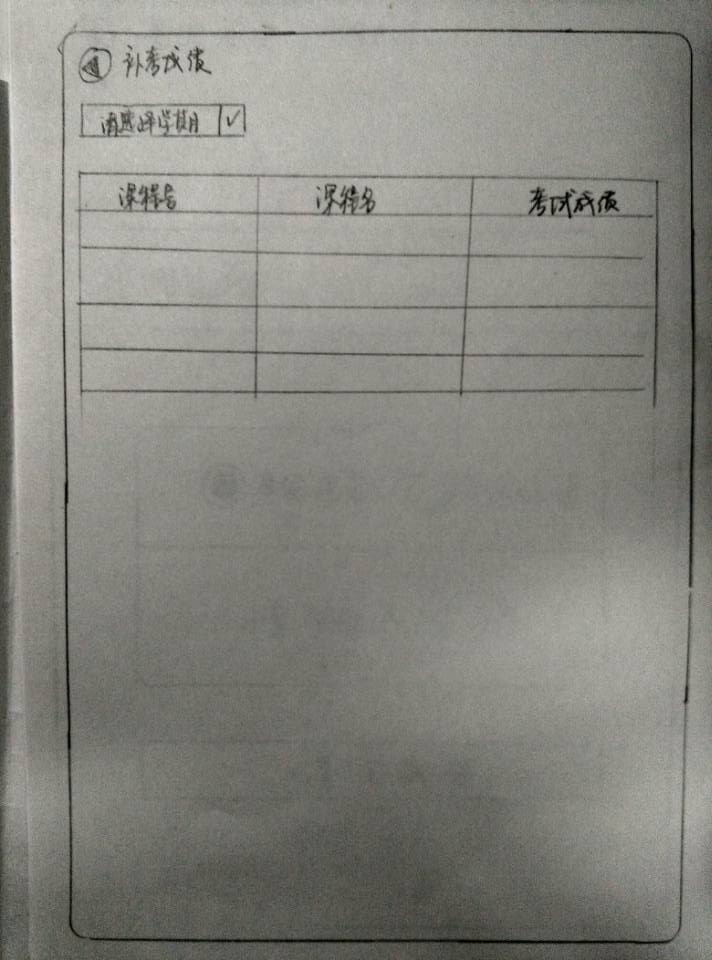 补考成绩
请选择学期
课程号 课程名 考试成绩